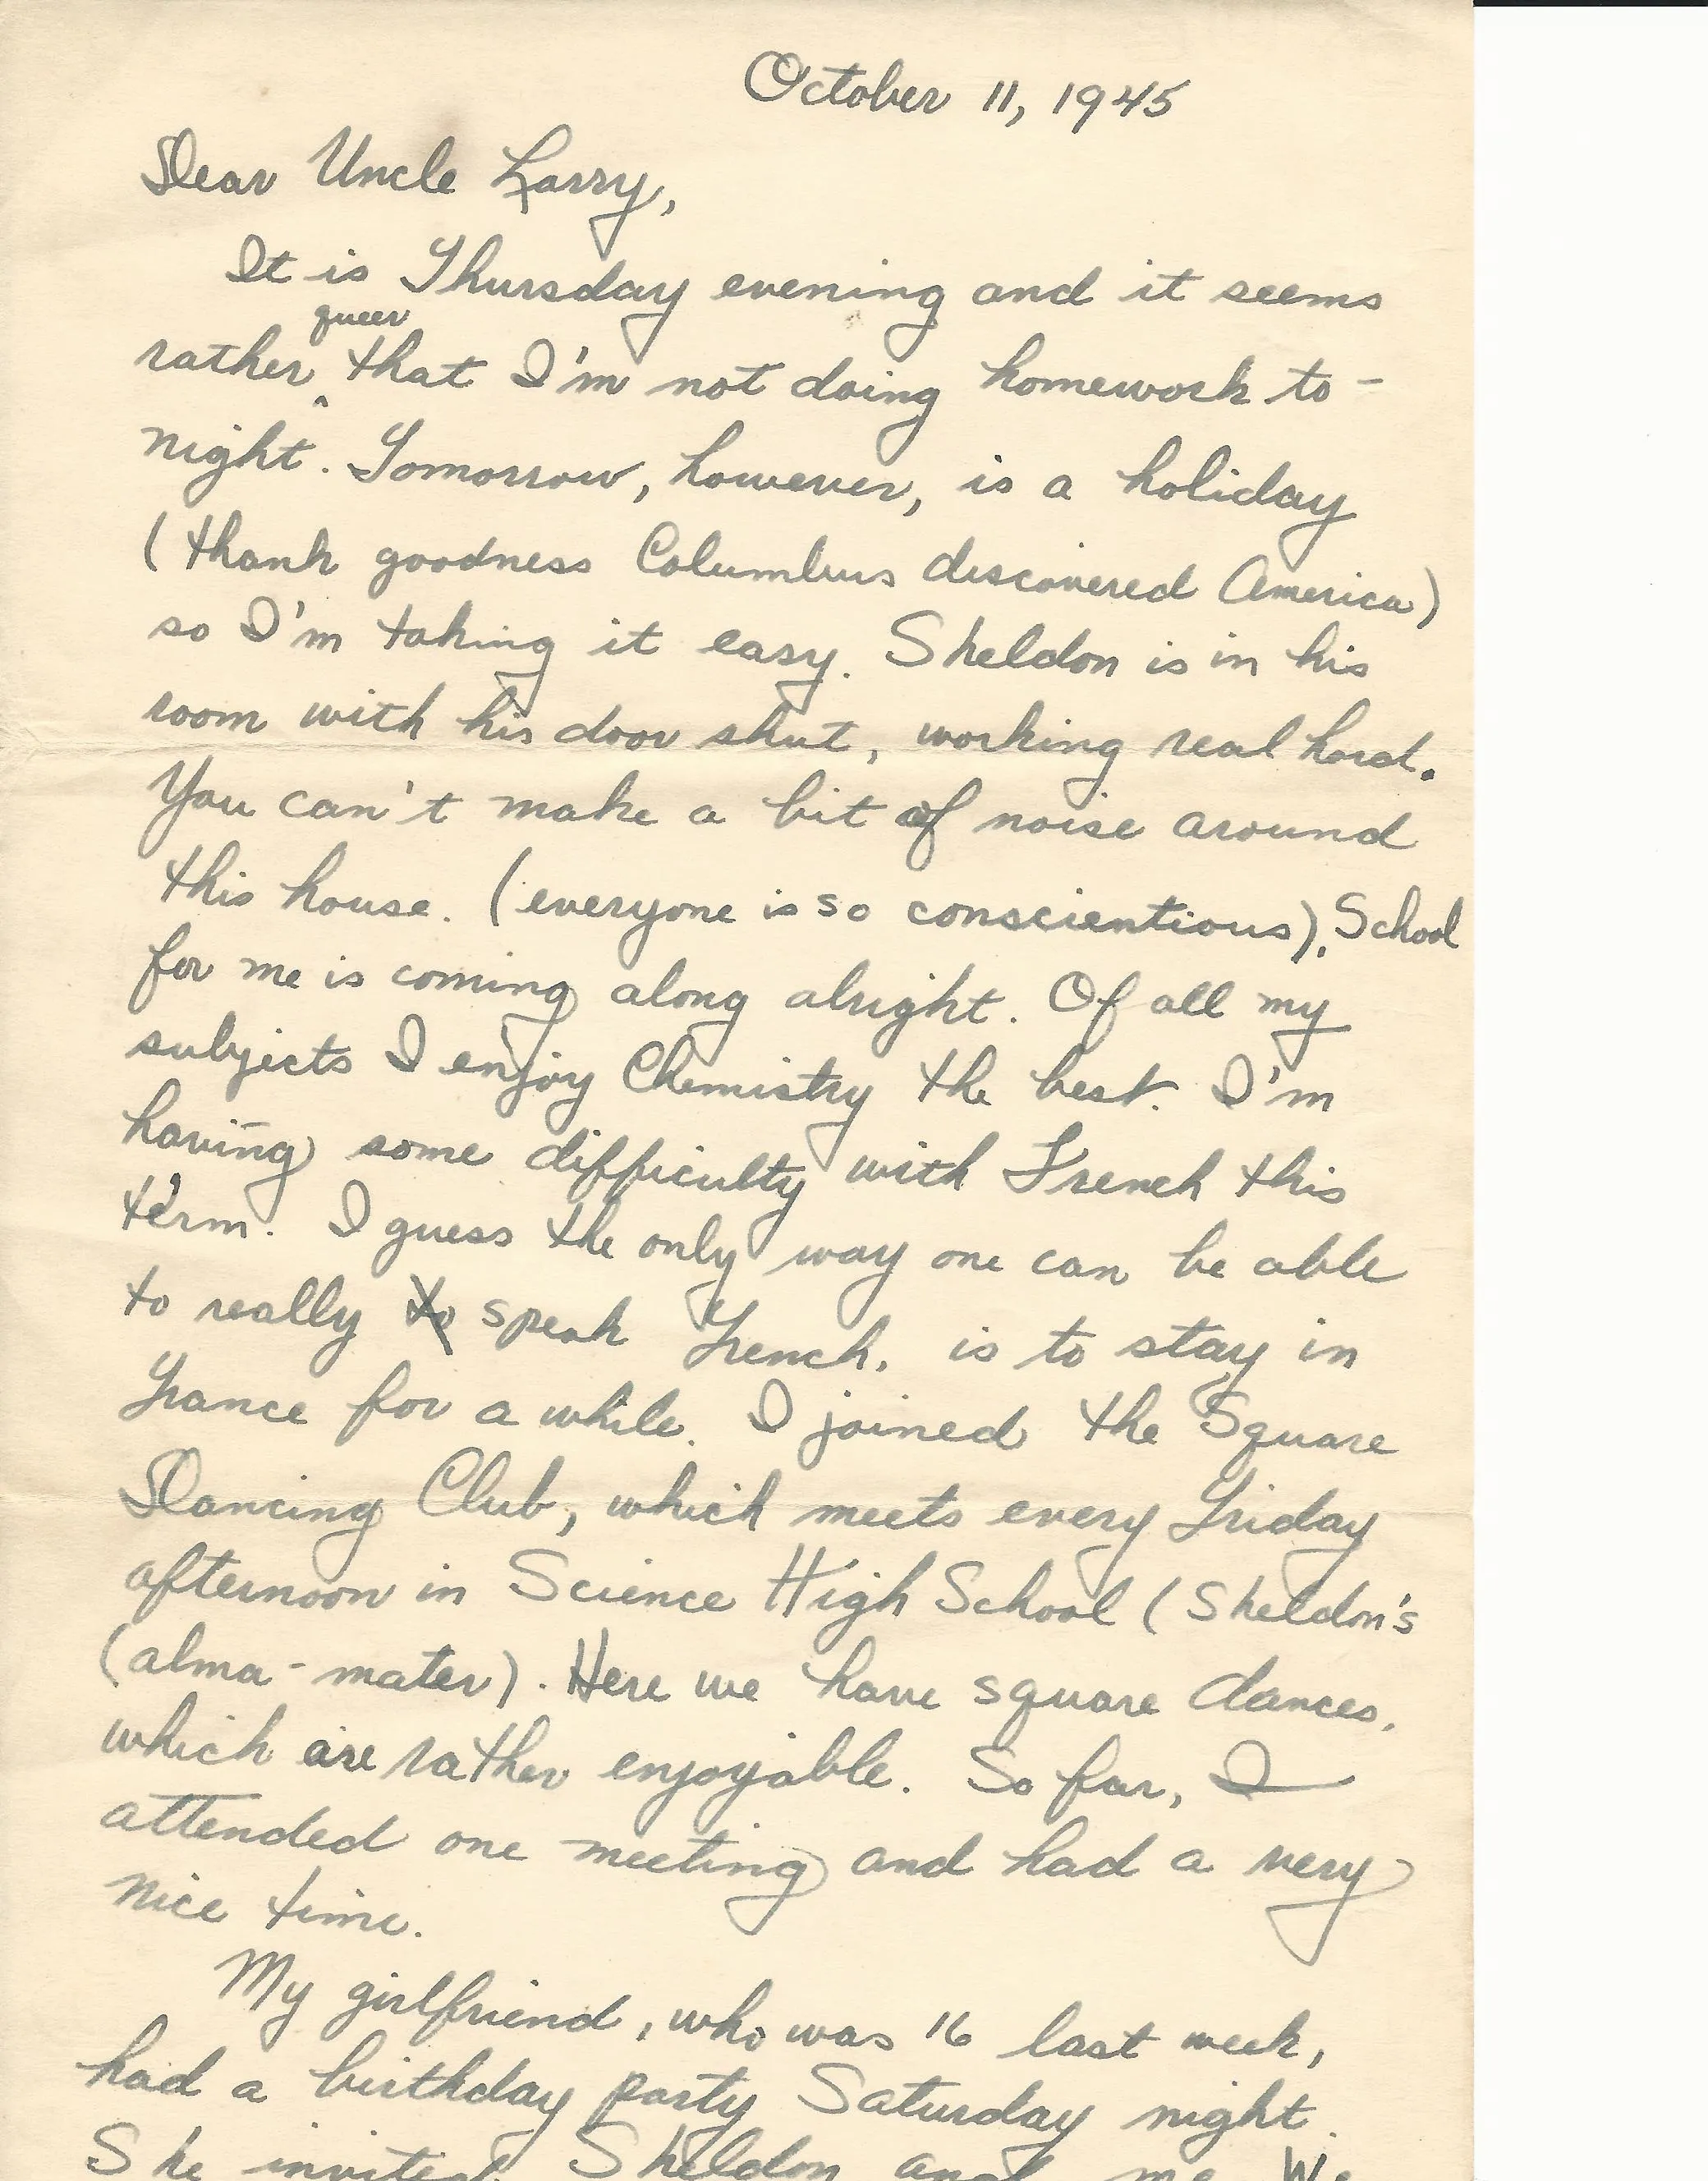 October 11, 1945
Dear Uncle Larry,
It is Thursday evening and it seems
queer
rather ^ that I'm not doing homework to-
night. Tomorrow, however, is a holiday
(thank goodness Columbus discovered America)
so I'm taking it easy. Sheldon is in his
room with his door shut, working real hard.
You can't make a bit of noise around
this house. (everyone is so conscientious). School
for me is coming along alright. Of all my
subjects I enjoy Chemistry the best. I'm
having some difficulty with French this
term. I guess the only way one can be able
to really to speak French, is to stay in
France for a while. I joined the Square
Dancing Club, which meets every Friday
afternoon in Science High School (Sheldon's
(alma-mater). Here we have square dances,
which are rather enjoyable. So far, I
attended one meeting and had a very
nice time.
My girlfriend, who was 16 last week,
had a birthday party Saturday night.
She invited Sheldon and me. We